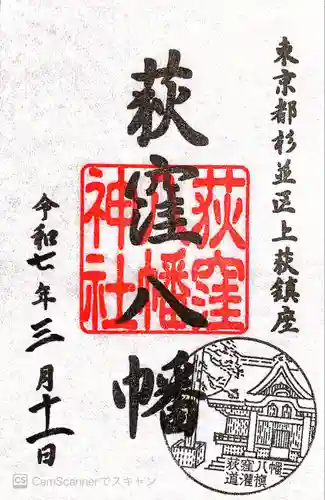 東京都杉並区上荻鎮座
荻窪八幡
荻窪
八幡
神社
令和七年三月十一日
荻窪八幡
道灌槇
CS CamScannerでスキャン